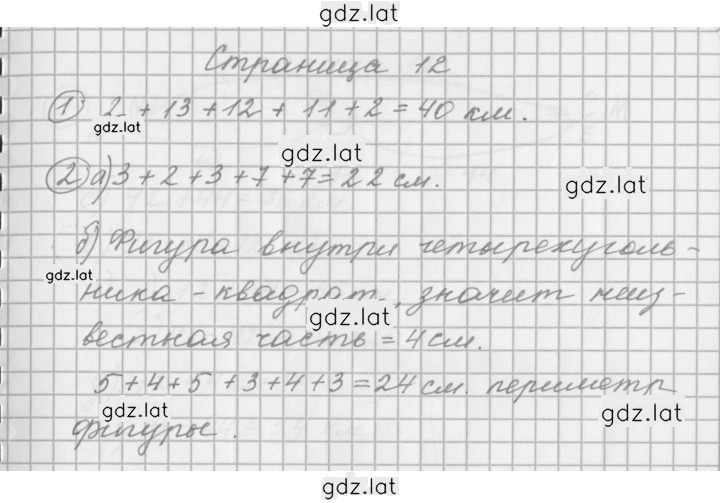 gdz.lat
Страница 12
① 2 + 13 + 12 + 11 + 2 = 40 км.
gdz.lat
gdz.lat
② а) 3 + 2 + 3 + 7 + 7 = 22 см.
gdz.lat
б) Фигура внутри четырехуголь-
gdz.lat
ника - квадрат, значит неиз-
gdz.lat
вестная часть = 4 см.
5 + 4 + 5 + 3 + 4 + 3 = 24 см. периметр
gdz.lat
gdz.lat
фигуры.
gdz.lat